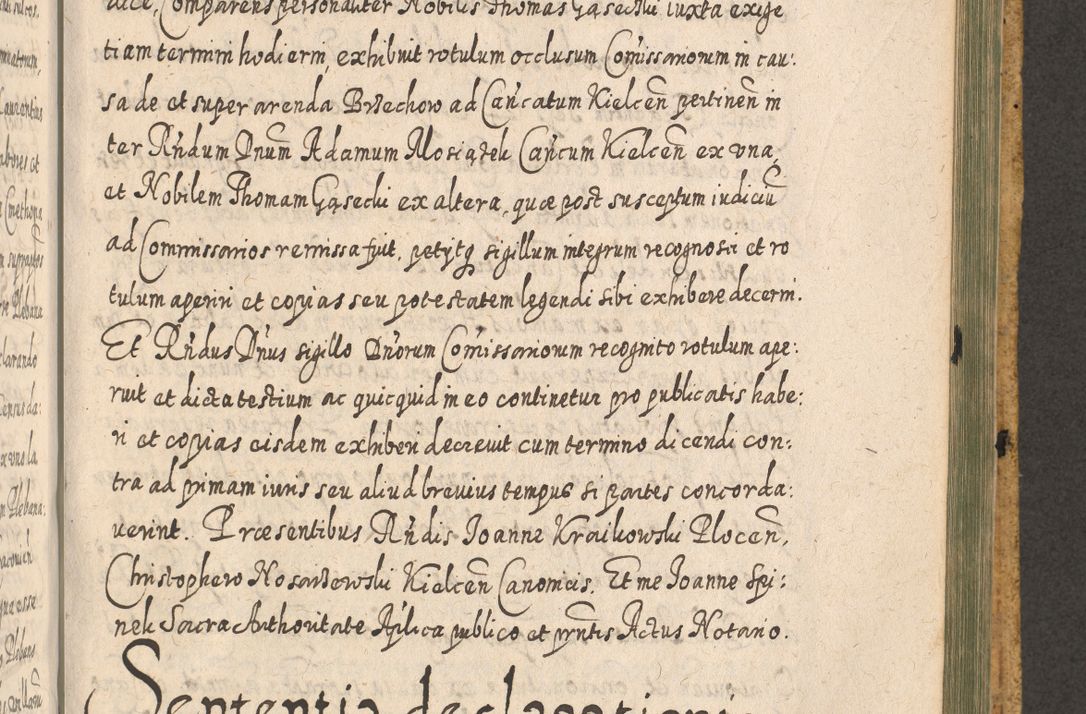 dice, Comparens personaliter Nobilis Thomas Gąsecki iuxta exige
tiam termini hodierni, exhibuit rotulum occlusum Comissariorum in cau:
sa de et super arenda Brzechow ad Cancatum Kielcen pertinen in
ter Rndum Dnum Adamum Mosiążek Cancum Kielcen ex vna,
et Nobilem Thomam Gąsecki ex altera, quæ post susceptum iudiciu
ad Commissarios remissa fuit, petytq sigillum integrum recognosci et ro
tulum aperiri et copias seu potestatem legendi sibi exhibere decerni.
Et Rndus Dnus sigillo Dnorum Comissariorum recognito rotulum ape:
ruit et dicta testium ac quicquid in eo continetur pro publicatis habe:
ri et copias eisdem exhiberi decreuit cum termino dicendi con:
tra ad primam iuris seu aliud breuius tempus si partes concorda:
uerint. Præsentibus Rndis Joanne Kraikowski Plocen,
Christophero Nosarzewski Kielcen Canonicis. Et me Joanne Spi:
nek Sacra Authoritate Aplica publico et pntis Actus Notario.
Sententia declarationis